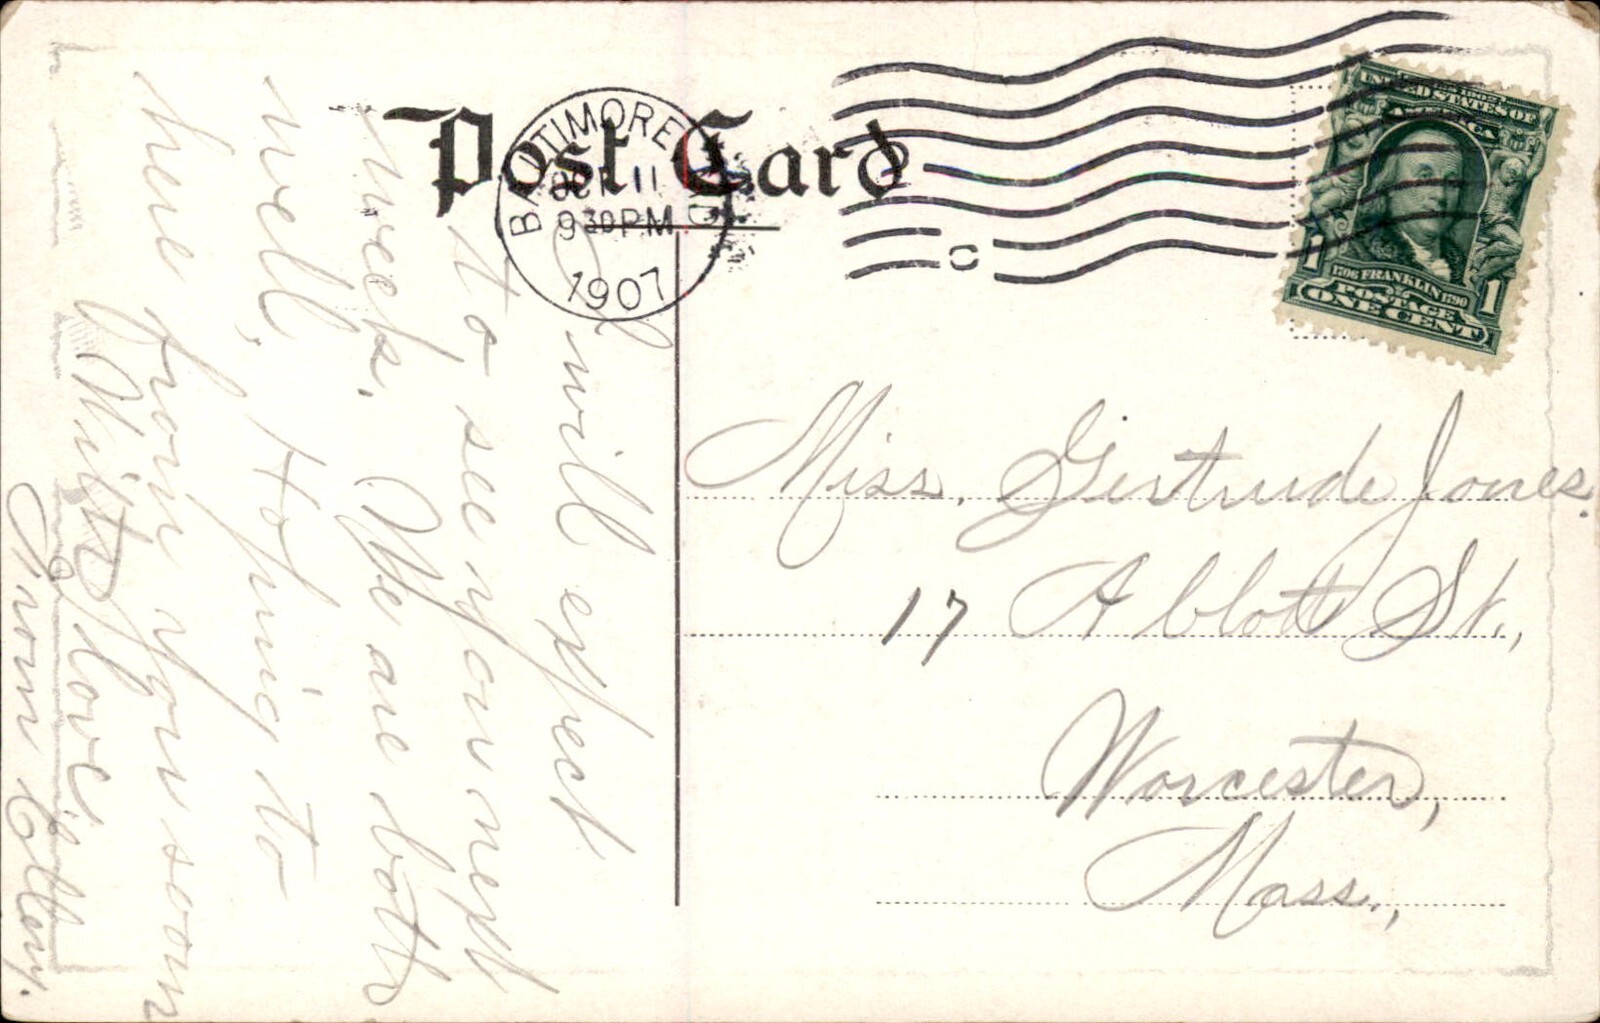 Post Card
BALTIMORE
OCT 11
930PM
1907
C
UNITED STATES OF
AMERICA
1706 FRANKLIN 1790
POSTAGE
1 ONE CENT 1
Miss. Gertrude Jones.
17 Abbott St.,
Worcester,
Mass.,
I will expect
to see you next
week. We are both
well, Hoping to
hear from you soon
With love.
From Ellen.